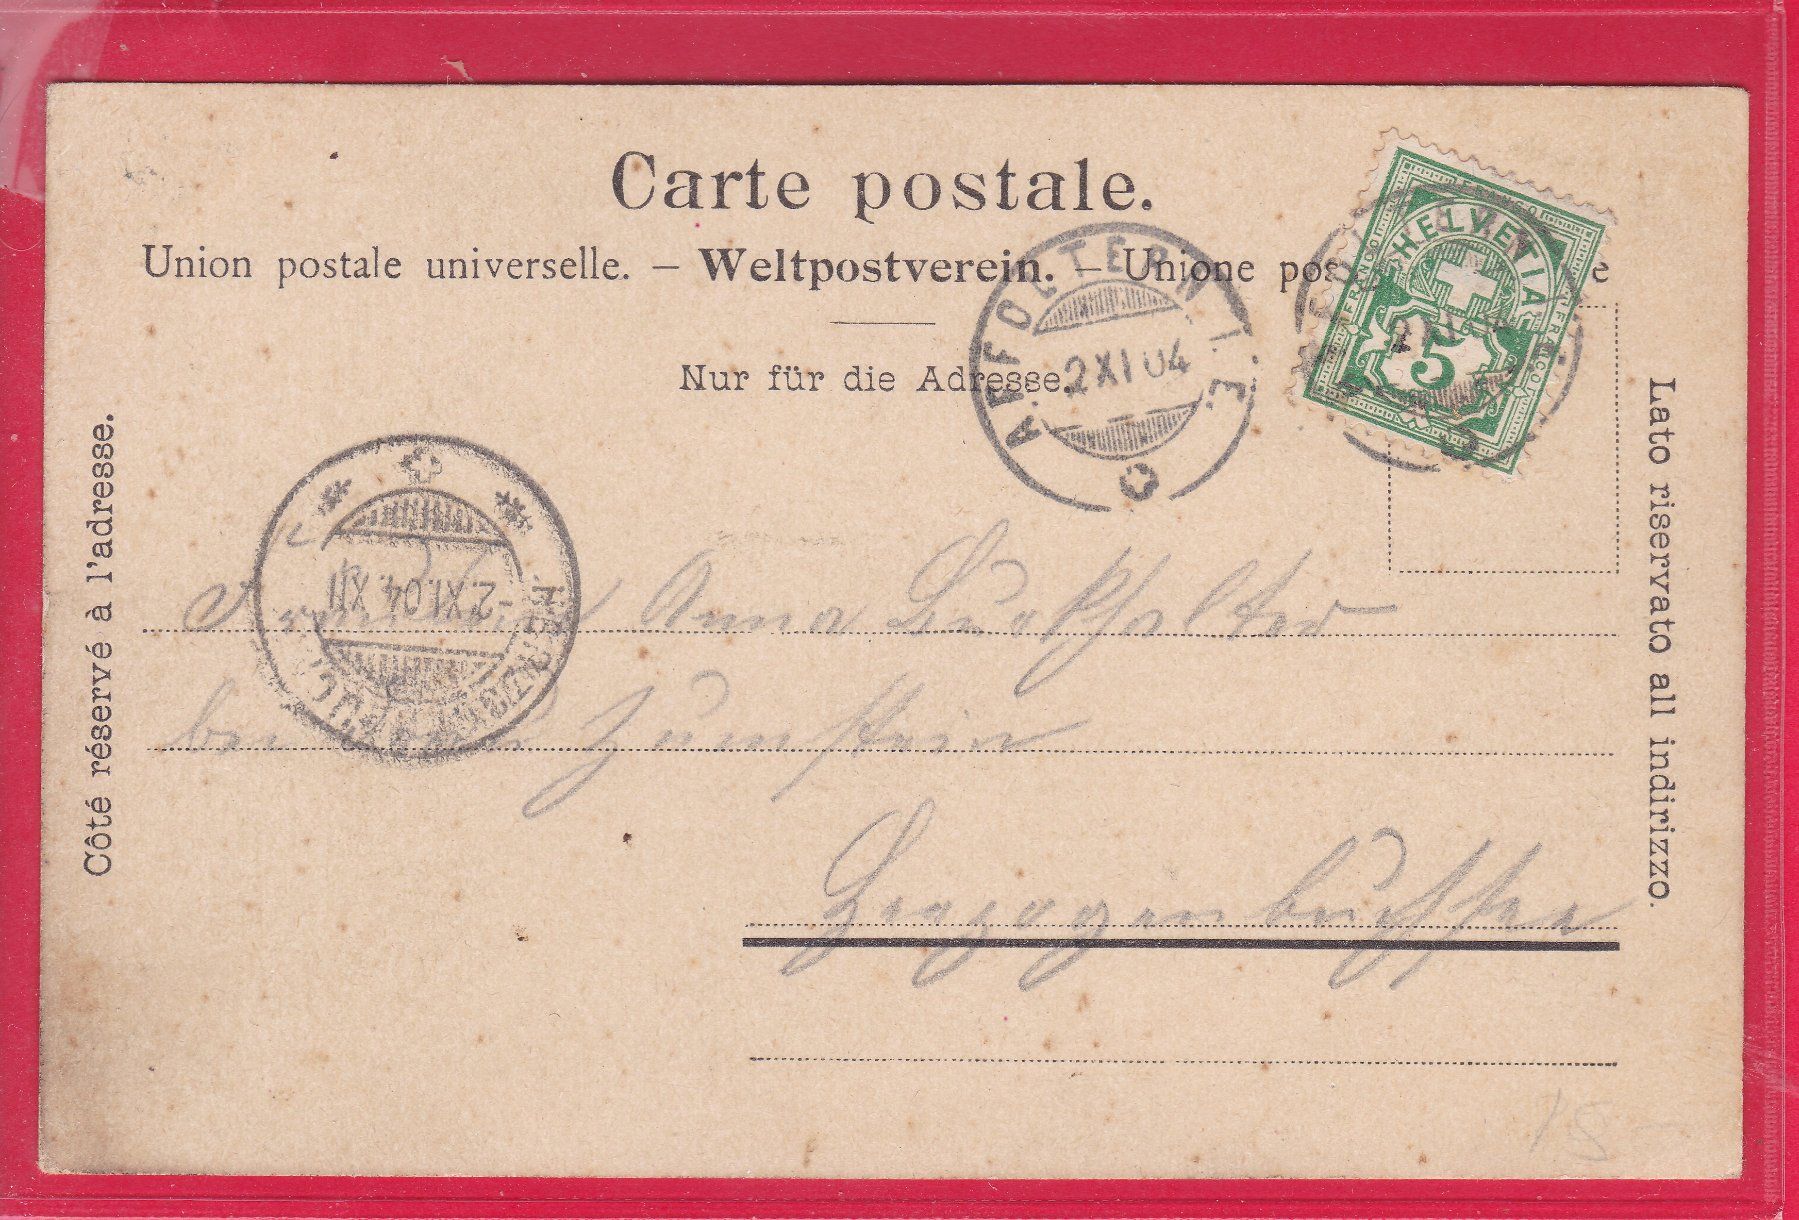 Carte postale.
Union postale universelle. – Weltpostverein. – Unione pos e
Nur für die Adresse.
Côté réservé à l'adresse.
Lato riservato all indirizzo.
AFFOLTERN I. E.
2 XI 04
FRANCO HELVETIA FRANCO
5
2 XI
-2.XI.04.XII
HERZOGENBUCHSEE
Fräulein Anna Burkhalter
bei Zumstein
Herzogenbuchsee
15 –